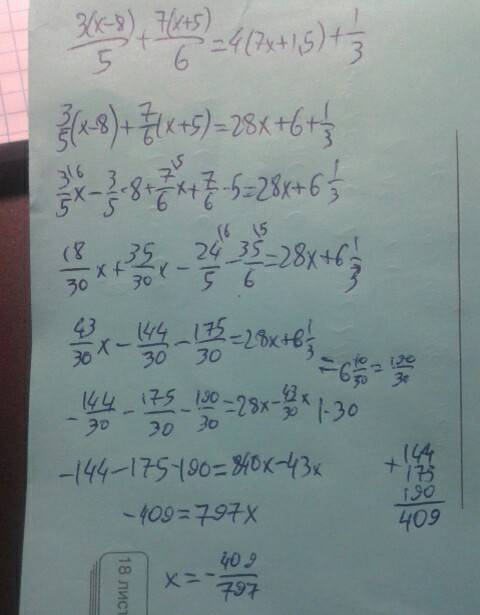 3(x-8)/5 + 7(x+5)/6 = 4(7x+1,5) + 1/3
3/5(x-8) + 7/6(x+5) = 28x + 6 + 1/3
3/5^(6 x - 3/5 · 8 + 7/6^(5 x + 7/6 · 5 = 28x + 6 1/3
18/30 x + 35/30 x - 24/5^(6 - 35/6^(5 = 28x + 6 1/3
43/30 x - 144/30 - 175/30 = 28x + 6 1/3
= 6 10/30 = 190/30
-144/30 - 175/30 - 190/30 = 28x - 43/30 x |·30
-144-175-190 = 840x-43x
+ 144
175
190
409
-409 = 797x
x = - 409/797
18 лист